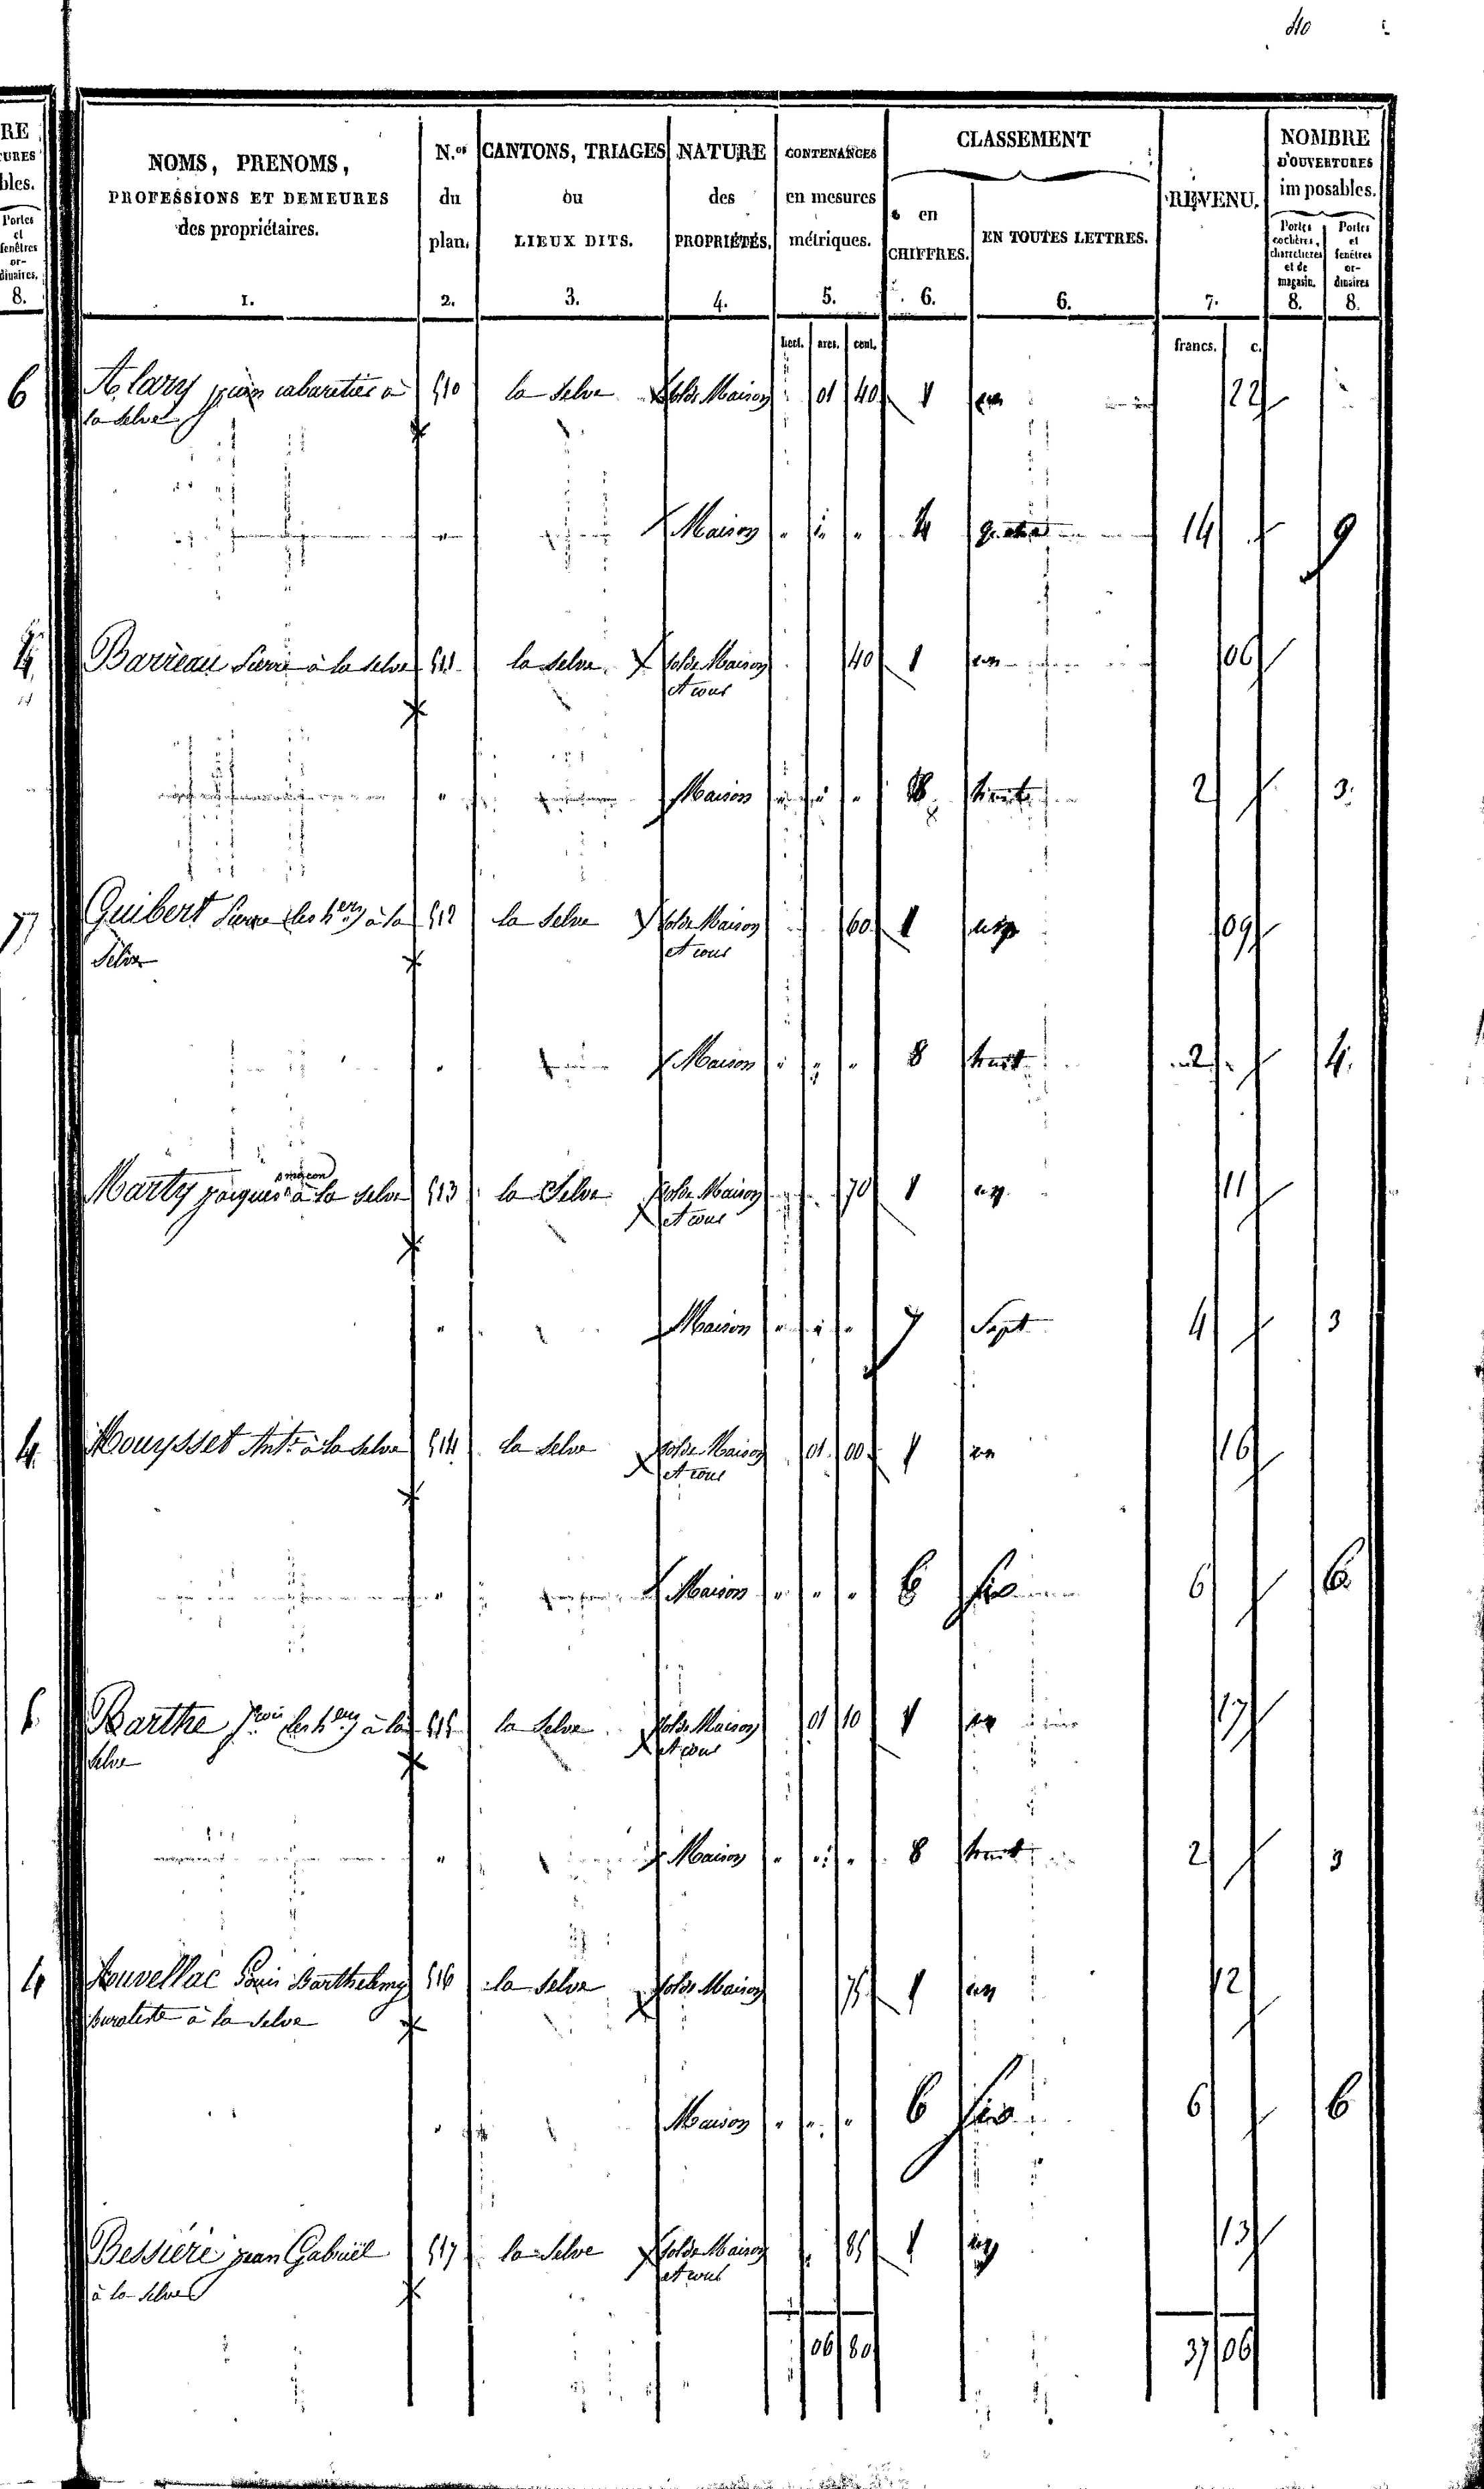 410
RE
TURES
bles.
Portes
et
fenêtres
or-
dinaires.
8.
6
4
4
4
NOMS, PRENOMS,
PROFESSIONS ET DEMEURES
des propriétaires.
1.
N.os
du
plan.
2.
CANTONS, TRIAGES
ou
LIEUX DITS.
3.
NATURE
des
PROPRIÉTÉS.
4.
CONTENANCES
en mesures
métriques.
5.
CLASSEMENT
en
CHIFFRES.
6.
EN TOUTES LETTRES.
6.
REVENU.
7.
NOMBRE
D'OUVERTURES
imposables.
Portes
cochères,
charretières
et de
magasin.
8.
Portes
et
fenêtres
or-
dinaires
8.
hect. ares. cent. francs. c.
Alary jean cabaretier à 510 la Selve sol de Maison 01 40 1 un 22
la Selve
" Maison " " " 4 quatre 14 9
Barreau Pierre à la Selve 511 la Selve sol de Maison 40 1 un 06
et cour
" Maison " " " 8 huit 2 3
Guibert Pierre (les hers) à la 512 la Selve sol de Maison 60 1 un 09
Selve et cour
" Maison " " " 8 huit 2 4
maçon
Marty jacques à la Selve 513 la Selve sol de Maison 70 1 un 11
et cour
" Maison " " " 7 Sept 4 3
Mouysset Ante à la Selve 514 la Selve sol de Maison 01 00 1 un 16
et cour
" Maison " " " 6 six 6 6
Barthe frois (les hers) à la 515 la Selve sol de Maison 01 10 1 un 17
Selve et cour
" Maison " " " 8 huit 2 3
Louis Barthelemy 516 la Selve sol de Maison 75 1 un 12
buraliste à la Selve
" Maison " " " 6 six 6 6
Bessiere jean Gabriel 517 la Selve sol de Maison 85 1 un 13
à la Selve et cour
06 80 37 06